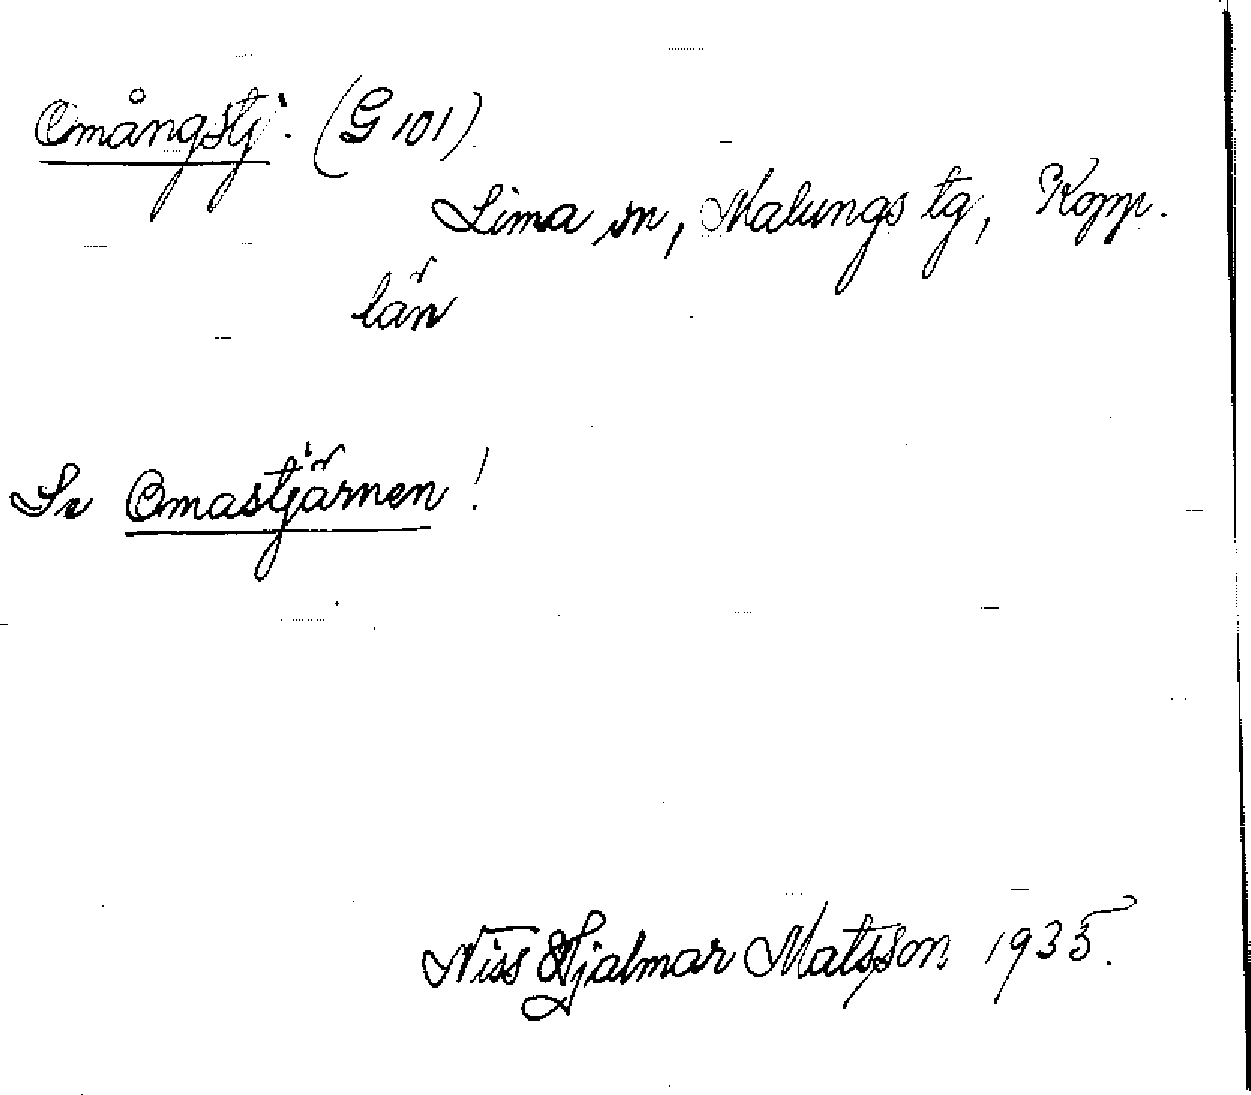 Omångstj. (G 101)
Lima sn, Malungs tg, Kopp.
län
Se Omastjärnen!
Niss Hjalmar Matsson 1935.